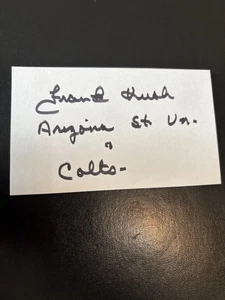 Frank Kush
Arizona St. Un.
&
Colts-